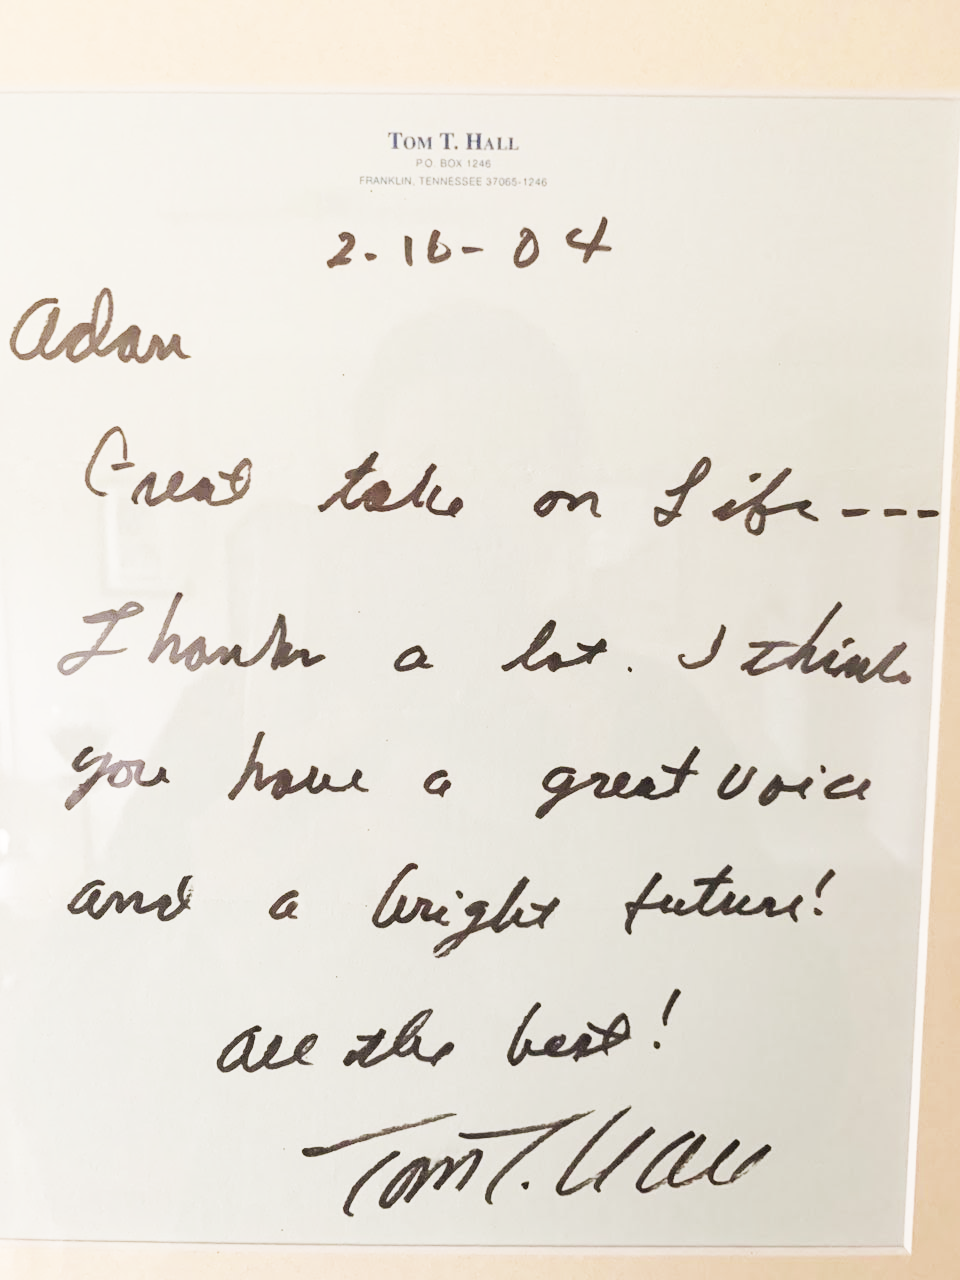 TOM T. HALL
P.O. BOX 1246
FRANKLIN, TENNESSEE 37065-1246
2-16-04
Adam
Great take on Life---
Thanks a lot. I think
you have a great voice
and a bright future!
All the best!
Tom T. Hall